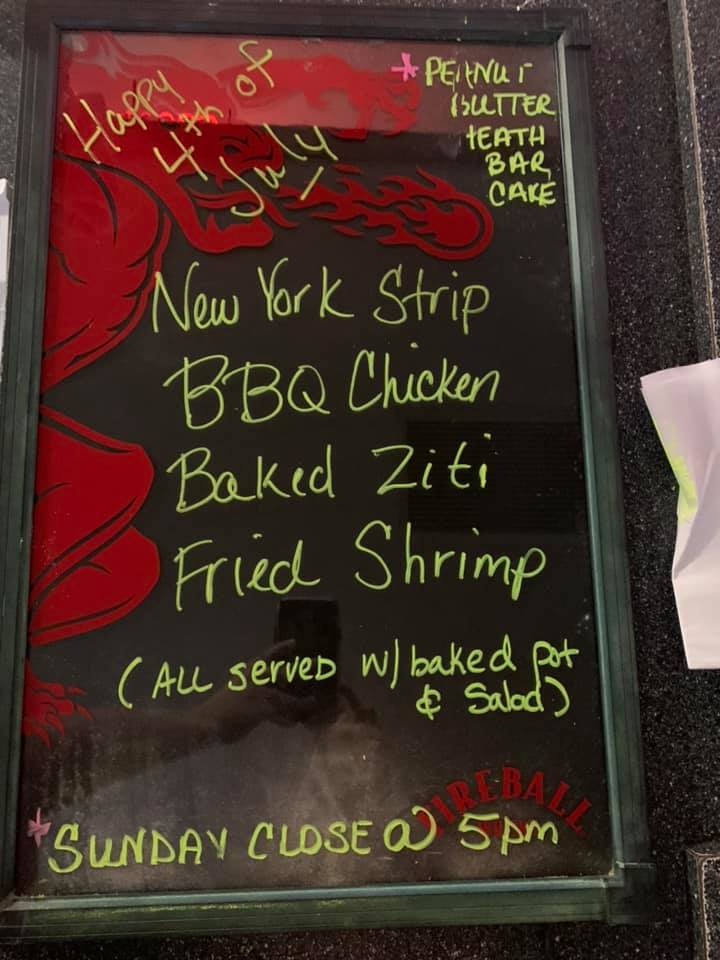 Happy
4th of
July
* PEANUT
BUTTER
HEATH
BAR
CAKE
New York Strip
BBQ Chicken
Baked Ziti
Fried Shrimp
(ALL served w/ baked pot
& Salad)
FIREBALL
* SUNDAY CLOSE @ 5pm